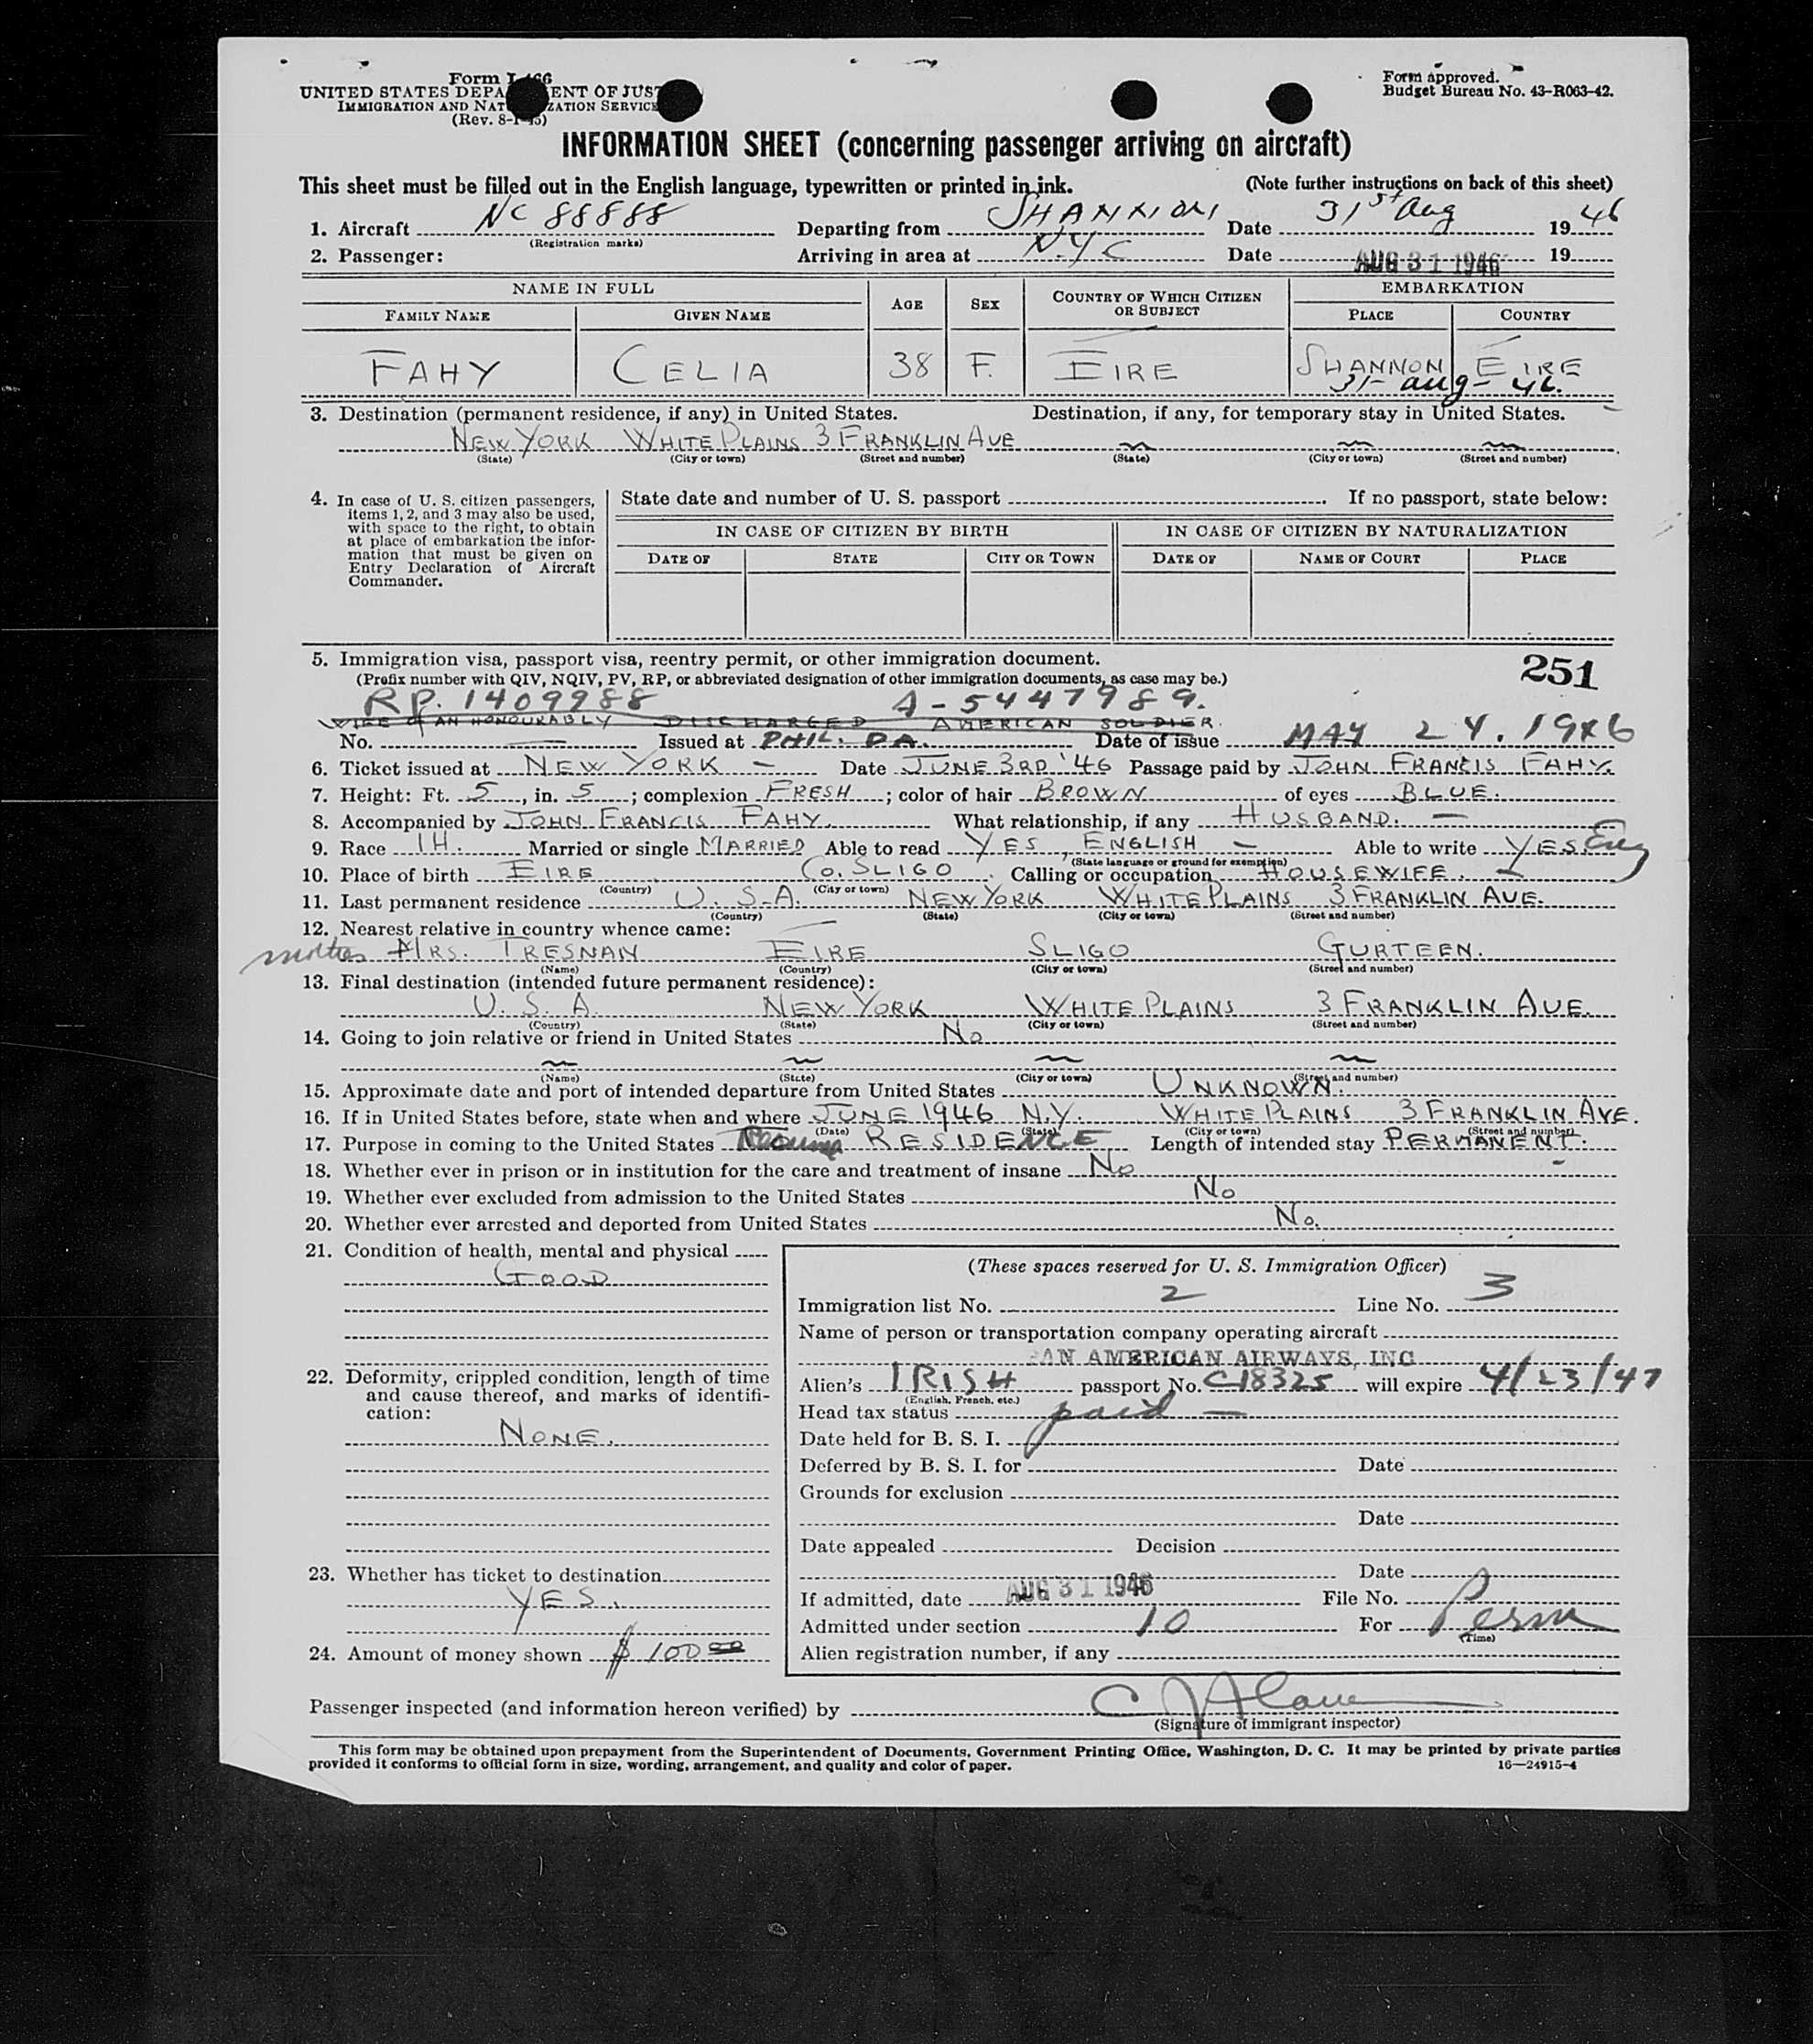 Form I-466
UNITED STATES DEPARTMENT OF JUSTICE
IMMIGRATION AND NATURALIZATION SERVICE
(Rev. 8-1-45)
Form approved.
Budget Bureau No. 43-R063-42.
INFORMATION SHEET (concerning passenger arriving on aircraft)
This sheet must be filled out in the English language, typewritten or printed in ink. (Note further instructions on back of this sheet)
1. Aircraft NC 88888 Departing from SHANNON Date 31st Aug 1946
(Registration marks)
2. Passenger: Arriving in area at N.Y.C Date AUG 31 1946 19
NAME IN FULL AGE SEX COUNTRY OF WHICH CITIZEN OR SUBJECT EMBARKATION
FAMILY NAME GIVEN NAME PLACE COUNTRY
FAHY CELIA 38 F. EIRE SHANNON EIRE
31-aug-46.
3. Destination (permanent residence, if any) in United States. Destination, if any, for temporary stay in United States.
NEW YORK WHITE PLAINS 3 FRANKLIN AVE
(State) (City or town) (Street and number) (State) (City or town) (Street and number)
4. In case of U. S. citizen passengers, items 1, 2, and 3 may also be used, with space to the right, to obtain at place of embarkation the information that must be given on Entry Declaration of Aircraft Commander.
State date and number of U. S. passport . If no passport, state below:
IN CASE OF CITIZEN BY BIRTH IN CASE OF CITIZEN BY NATURALIZATION
DATE OF STATE CITY OR TOWN DATE OF NAME OF COURT PLACE
5. Immigration visa, passport visa, reentry permit, or other immigration document.
251
(Prefix number with QIV, NQIV, PV, RP, or abbreviated designation of other immigration documents, as case may be.)
RP. 1409988 A-5447989.
WIFE OF AN HONOURABLY DISCHARGED AMERICAN SOLDIER.
No. — Issued at PHIL. PA. Date of issue MAY 24. 1946
6. Ticket issued at NEW YORK — Date JUNE 3RD '46 Passage paid by JOHN FRANCIS FAHY.
7. Height: Ft. 5, in. 5; complexion FRESH; color of hair BROWN of eyes BLUE.
8. Accompanied by JOHN FRANCIS FAHY. What relationship, if any HUSBAND. —
9. Race IH. Married or single MARRIED Able to read YES, ENGLISH — Able to write YES. Eng
(State language or ground for exemption)
10. Place of birth EIRE Co. SLIGO. Calling or occupation HOUSEWIFE.
(Country) (City or town)
11. Last permanent residence U.S.A. NEW YORK WHITE PLAINS 3 FRANKLIN AVE.
(Country) (State) (City or town) (Street and number)
12. Nearest relative in country whence came:
mother MRS. TRESNAN EIRE SLIGO GURTEEN.
(Name) (Country) (City or town) (Street and number)
13. Final destination (intended future permanent residence):
U.S.A. NEW YORK WHITE PLAINS 3 FRANKLIN AVE.
(Country) (State) (City or town) (Street and number)
14. Going to join relative or friend in United States No
(Name) (State) (City or town) (Street and number)
15. Approximate date and port of intended departure from United States UNKNOWN.
16. If in United States before, state when and where JUNE 1946 N.Y. WHITE PLAINS 3 FRANKLIN AVE.
(Date) (State) (City or town) (Street and number)
17. Purpose in coming to the United States RESIDENCE Length of intended stay PERMANENT.
18. Whether ever in prison or in institution for the care and treatment of insane No
19. Whether ever excluded from admission to the United States No
20. Whether ever arrested and deported from United States No.
21. Condition of health, mental and physical
GOOD
22. Deformity, crippled condition, length of time and cause thereof, and marks of identification:
NONE.
23. Whether has ticket to destination
YES.
24. Amount of money shown $100 00
(These spaces reserved for U. S. Immigration Officer)
Immigration list No. 2 Line No. 3
Name of person or transportation company operating aircraft
PAN AMERICAN AIRWAYS, INC
Alien's IRISH passport No. C18325 will expire 4/23/47
(English, French, etc.)
Head tax status paid —
Date held for B. S. I.
Deferred by B. S. I. for Date
Grounds for exclusion
Date
Date appealed Decision
Date
If admitted, date AUG 31 1946 File No.
Admitted under section 10 For Perm
(Time)
Alien registration number, if any
Passenger inspected (and information hereon verified) by
(Signature of immigrant inspector)
This form may be obtained upon prepayment from the Superintendent of Documents, Government Printing Office, Washington, D. C. It may be printed by private parties
provided it conforms to official form in size, wording, arrangement, and quality and color of paper. 16—24915-4